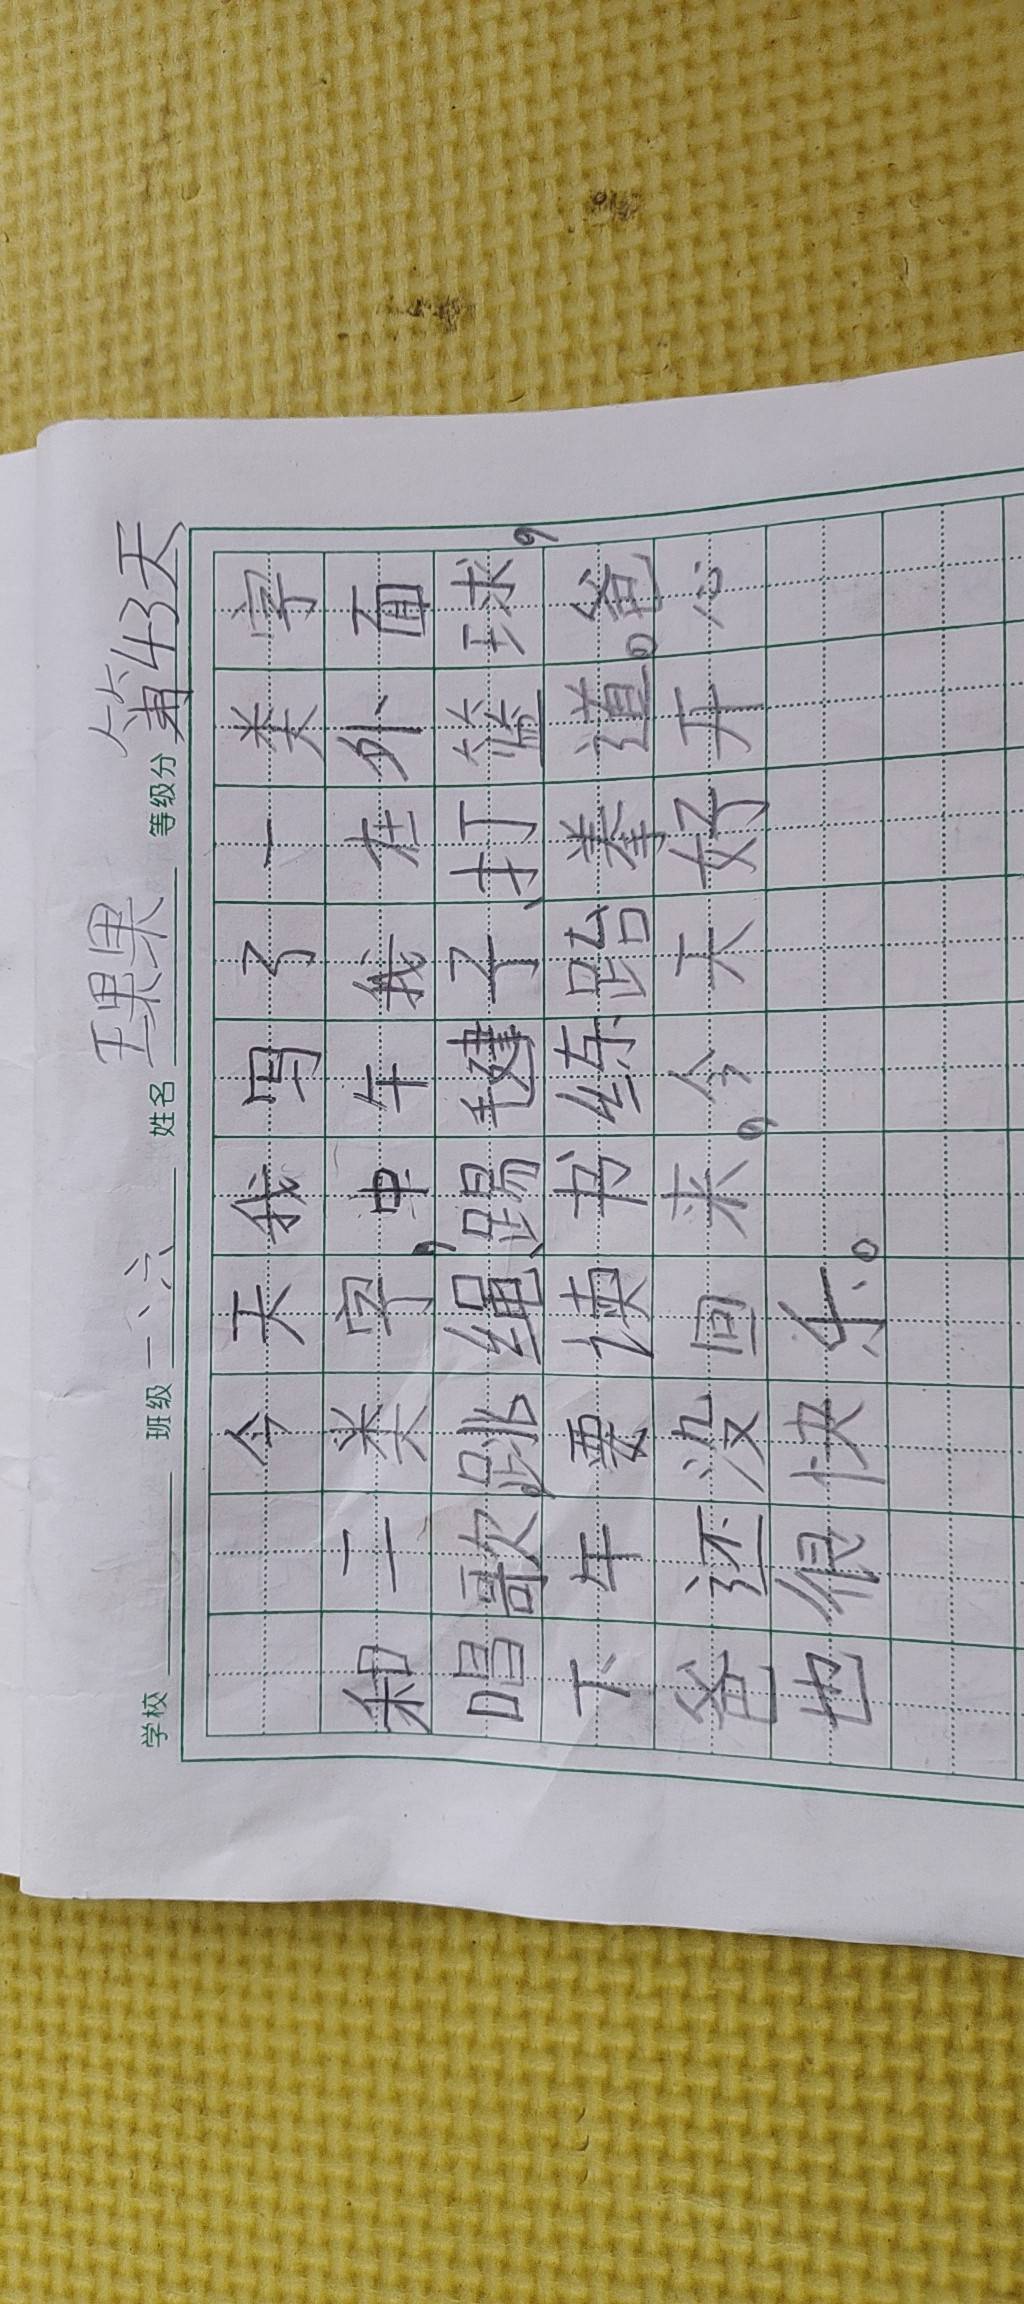 第43天
学校 班级 一、六 姓名 王果果 等级分
今天我写了一类字
和二类字，中午我在外面
唱歌、跳绳、踢毽子、打篮球，
下午要读书练跆拳道。爸
爸还没回来，今天好开心
也很快乐。